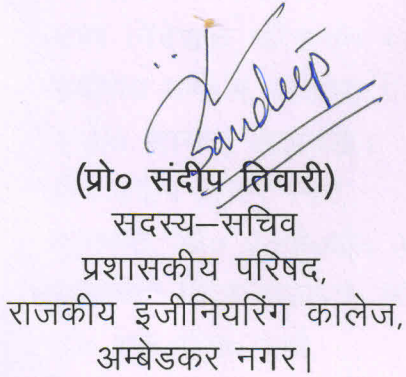 Sandeep
(प्रो० संदीप तिवारी)
सदस्य–सचिव
प्रशासकीय परिषद,
राजकीय इंजीनियरिंग कालेज,
अम्बेडकर नगर।